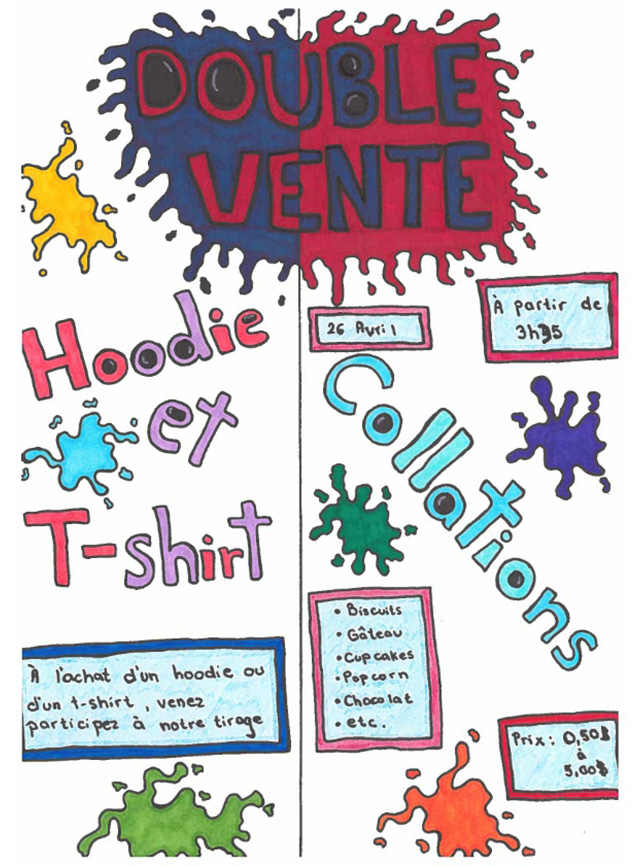 DOUBLE
VENTE
Hoodie
et
T-shirt
À l'achat d'un hoodie ou
d'un t-shirt, venez
participez à notre tirage
26 Avril
À partir de
Collations
• Biscuits
• Gâteau
• Cupcakes
• Popcorn
• Chocolat
• etc.
Prix: 0,50$
à
5,00$